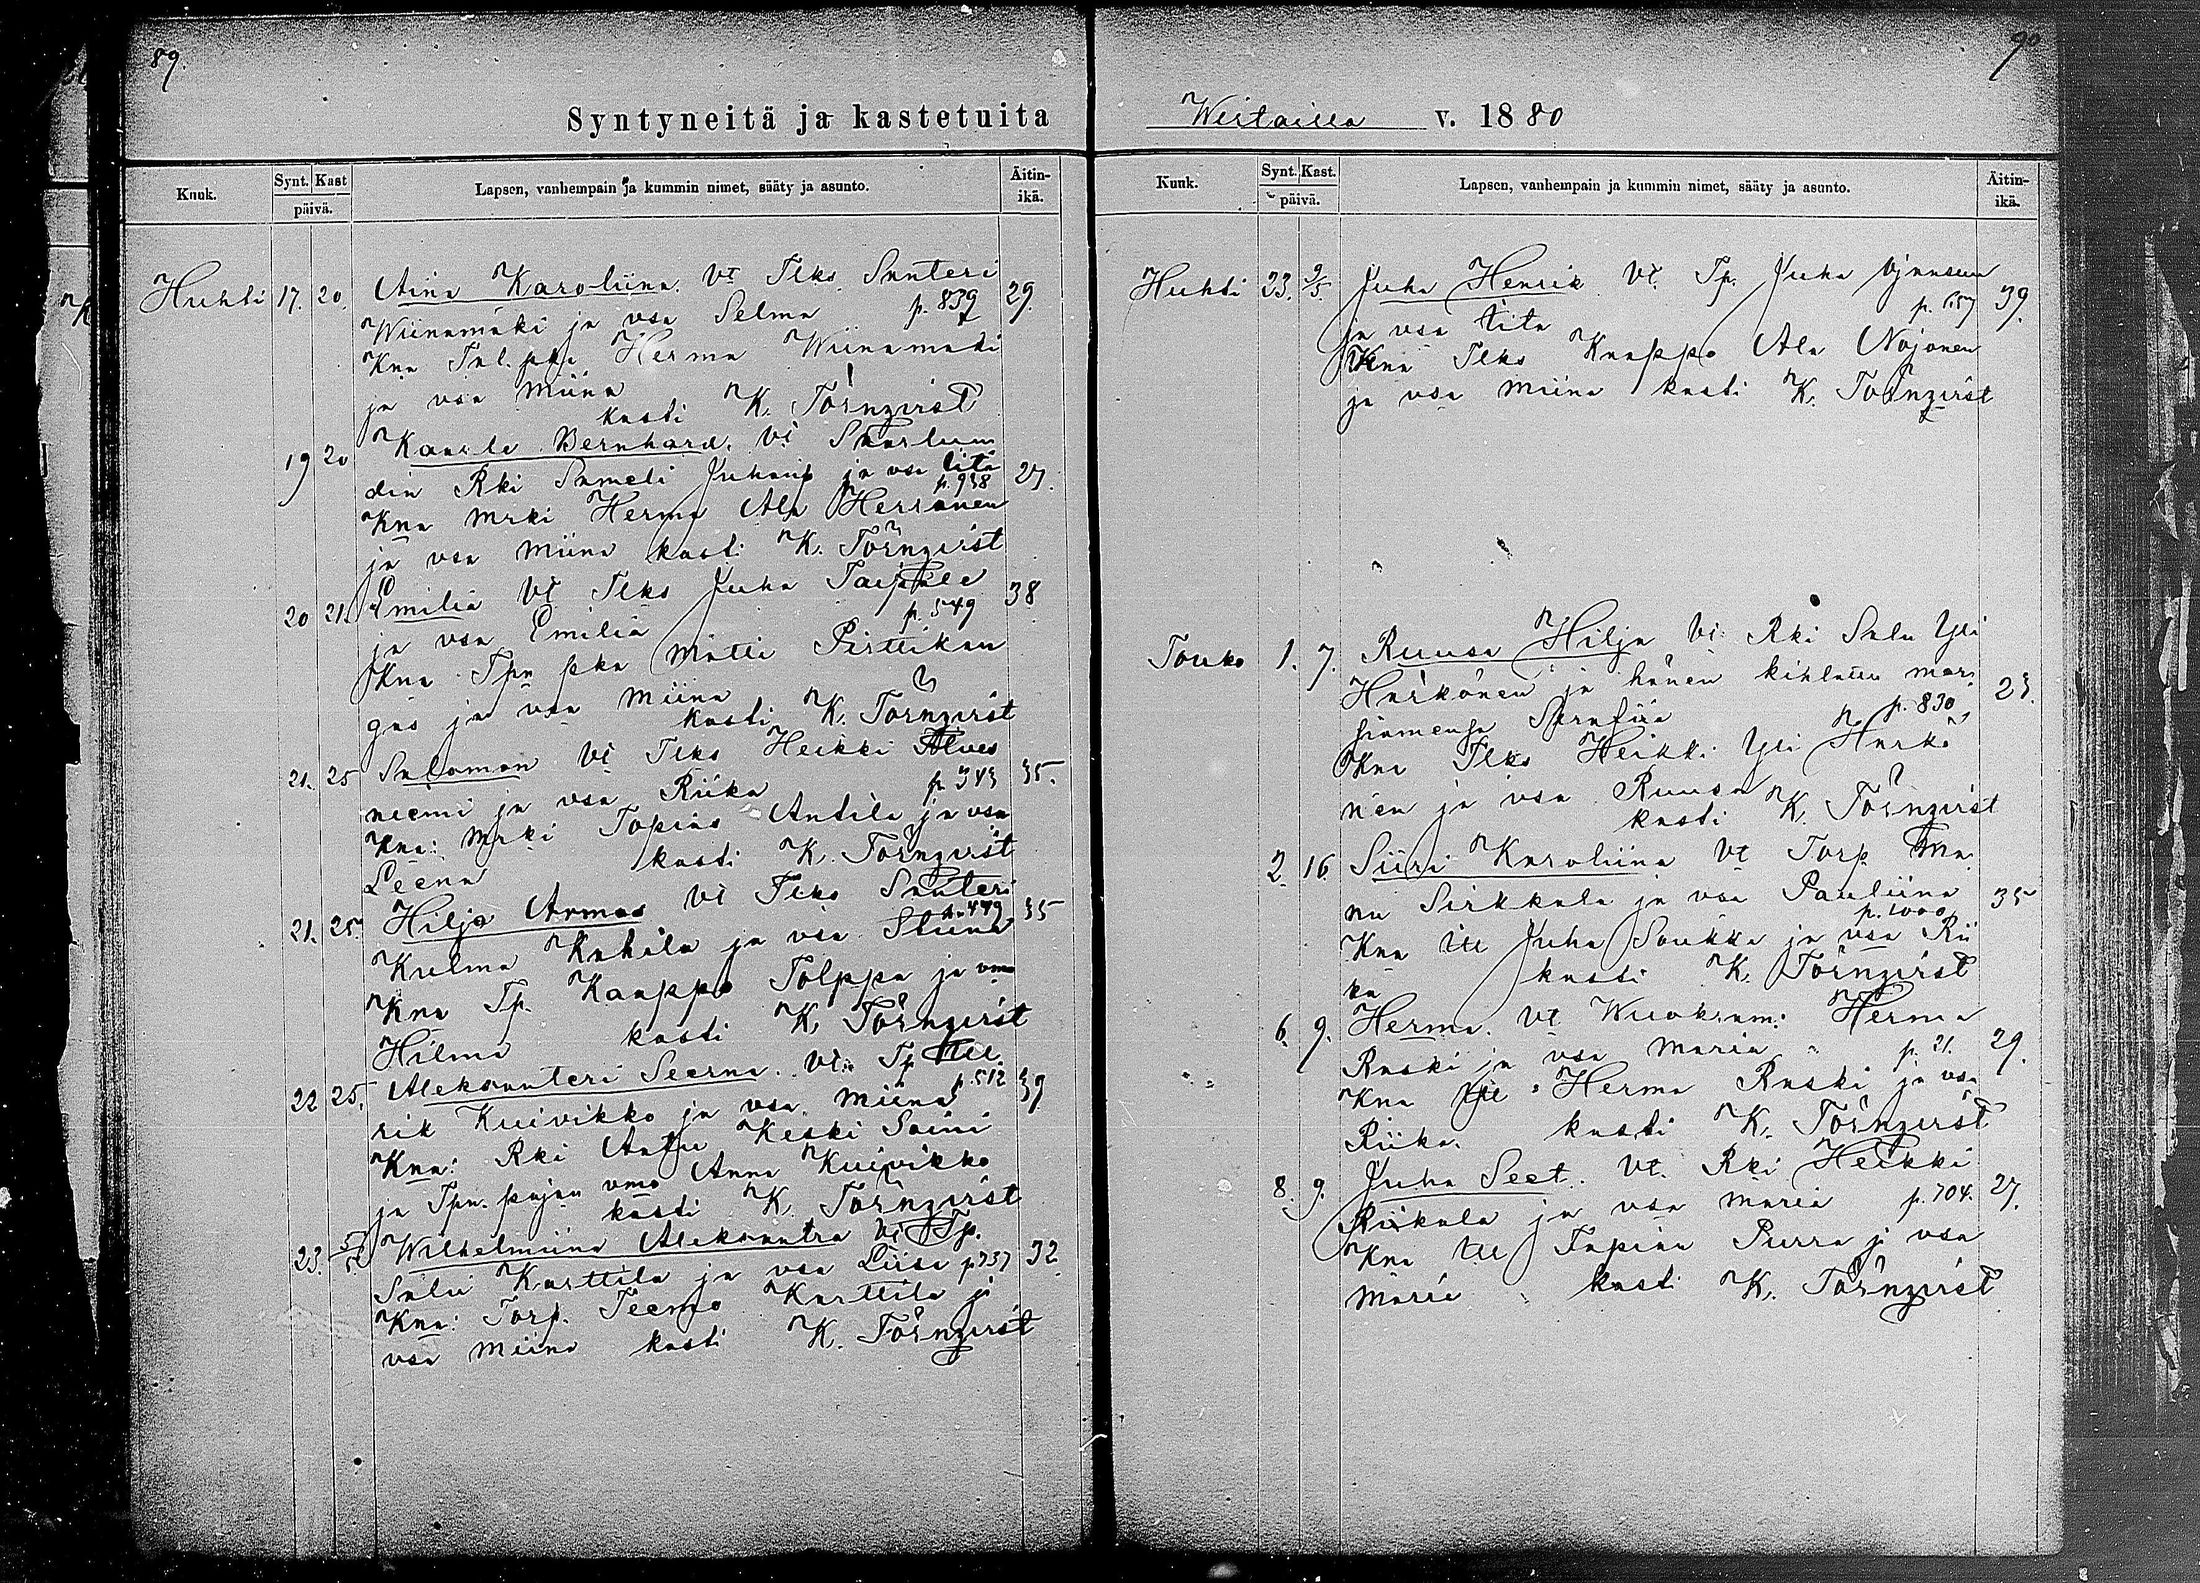 89.
Syntyneitä ja kastetuita
Kuuk.
Synt. Kast
päivä.
Lapsen, vanhempain ja kummin nimet, sääty ja asunto.
Äitin-
ikä.
Huhti 17. 20. Aina Karoliina. Vt Tlks. Santeri 29.
Wiinamäki ja vsa Selma p. 839
Kna Herma Wiinamäki
ja vsa Miina
kasti K. Törnqvist
19 20 Kaarle Bernhard. Vt
Rki Sameli ja vsa Iita 27.
p. 938
Kna Mrki Herma Ala Herranen
ja vsa Miina kasti K. Törnqvist
20 21. Emilia Vt Tlks Juha Taipale 38
ja vsa Emilia p. 549
Kna Tpn pka Matti Pirttikan
gas ja vsa Miina
kasti K. Törnqvist
21. 25 Salomon Vt Tlks Heikki Alves
niemi ja vsa Riika p. 343 35.
Kna: Mrki Topias Antila ja vsa
Leena kasti K. Törnqvist
21. 25. Hilja Armas Vt Tlks Santeri
p. 449 35
Kulma Kahila ja vsa Stiina
Kna Tp. Kaappo Tolppa ja vmo
Hilma kasti K. Törnqvist
22 25. Aleksanteri Seerna. Vt: Tp. Ul
p. 512 39
rik Kuivikko ja vsa Miina
Kna: Rki Antu Keski Soini
ja Tpn. pojan vmo Anna Kuivikko
kasti K. Törnqvist
23. Wilhelmiina Aleksantra Vt Tp.
Salu Karttila ja vsa Liisa p 737 32
Kna: Torp. Teemo Karttila ja
vsa Miina kasti K. Törnqvist
90
v. 1880
Kuuk.
Synt. Kast.
päivä.
Lapsen, vanhempain ja kummin nimet, sääty ja asunto.
Äitin-
ikä.
Huhti 23. 9/5. Juha Henrik Vt. Tp. Juha
ja vsa Iita 39.
Kna Tlks Kaappo Ala Nojonen
ja vsa Miina kasti K. Törnqvist
Touko 1. 7. Ruusa Hilja Vt. Rki Salu Yli
Härkönen ja hänen kihlattu mor- 23.
siamensa Serafiia p. 830
Kna Tlks Heikki Yli Härkö
nen ja vsa Ruusa
kasti K. Törnqvist
2. 16 Siiri Karoliina Vt Torp. Ma
nu Sirkkala ja vsa Pauliina 35
p. 1000
Kna Itl Juha Soukka ja vsa Rii
ka kasti K. Törnqvist
6. 9. Herma. Vt Wuokram: Herma
Raski ja vsa Maria p. 21. 29.
Kna Itl Herma Raski ja vsa
Riika. kasti K. Törnqvist
8. 9. Juha Seet. Vt. Rki Heikki
Riikala ja vsa Maria p. 704. 27.
Kna Itl Tapina Purra j vsa
Maria kasti K. Törnqvist